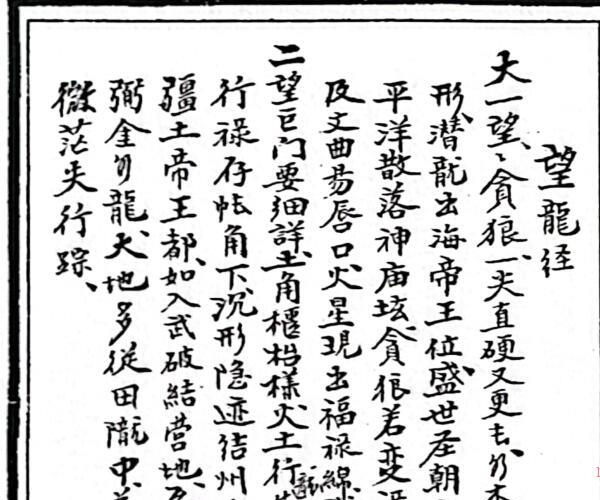 望龍径
大一望、ミ貪狼一尖直硬又更长、
形潜龍出海帝王位盛世圣朝
平洋散落神庙坛貪狼若变
及文曲昜唇口火星現出福禄綿
二望巨门要细詳土角櫃档様火土行
行禄存帐角下沉形隐迹结州
疆土帝王都、如入武破結营地、
弼金水龍、大地多從田隴中
微茫失行踪、